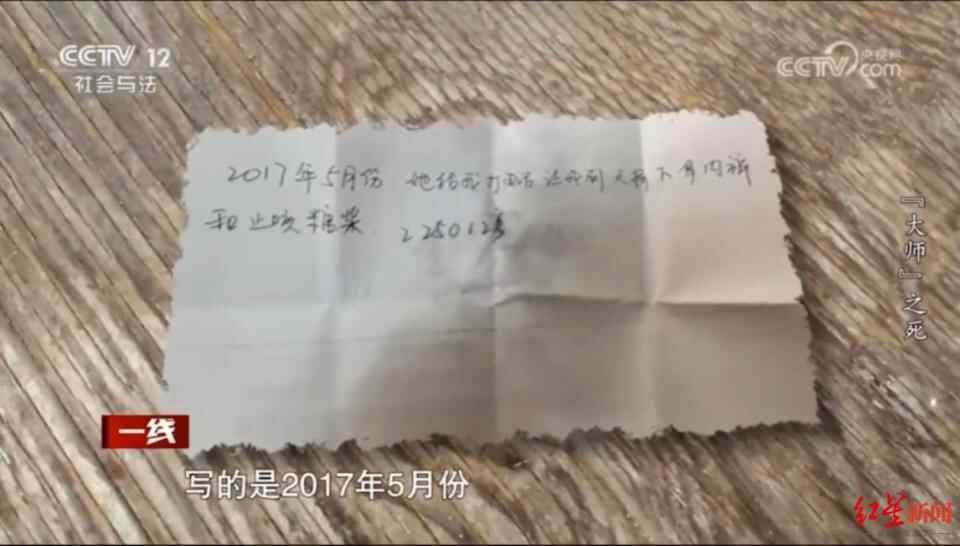 CCTV 12
社会与法
央视网
CCTV.com
2017年5月份 她给我打电话 让我到天桥下拿内裤
和止咳糖浆 225012
『大师』之死
一线
写的是2017年5月份
红星新闻